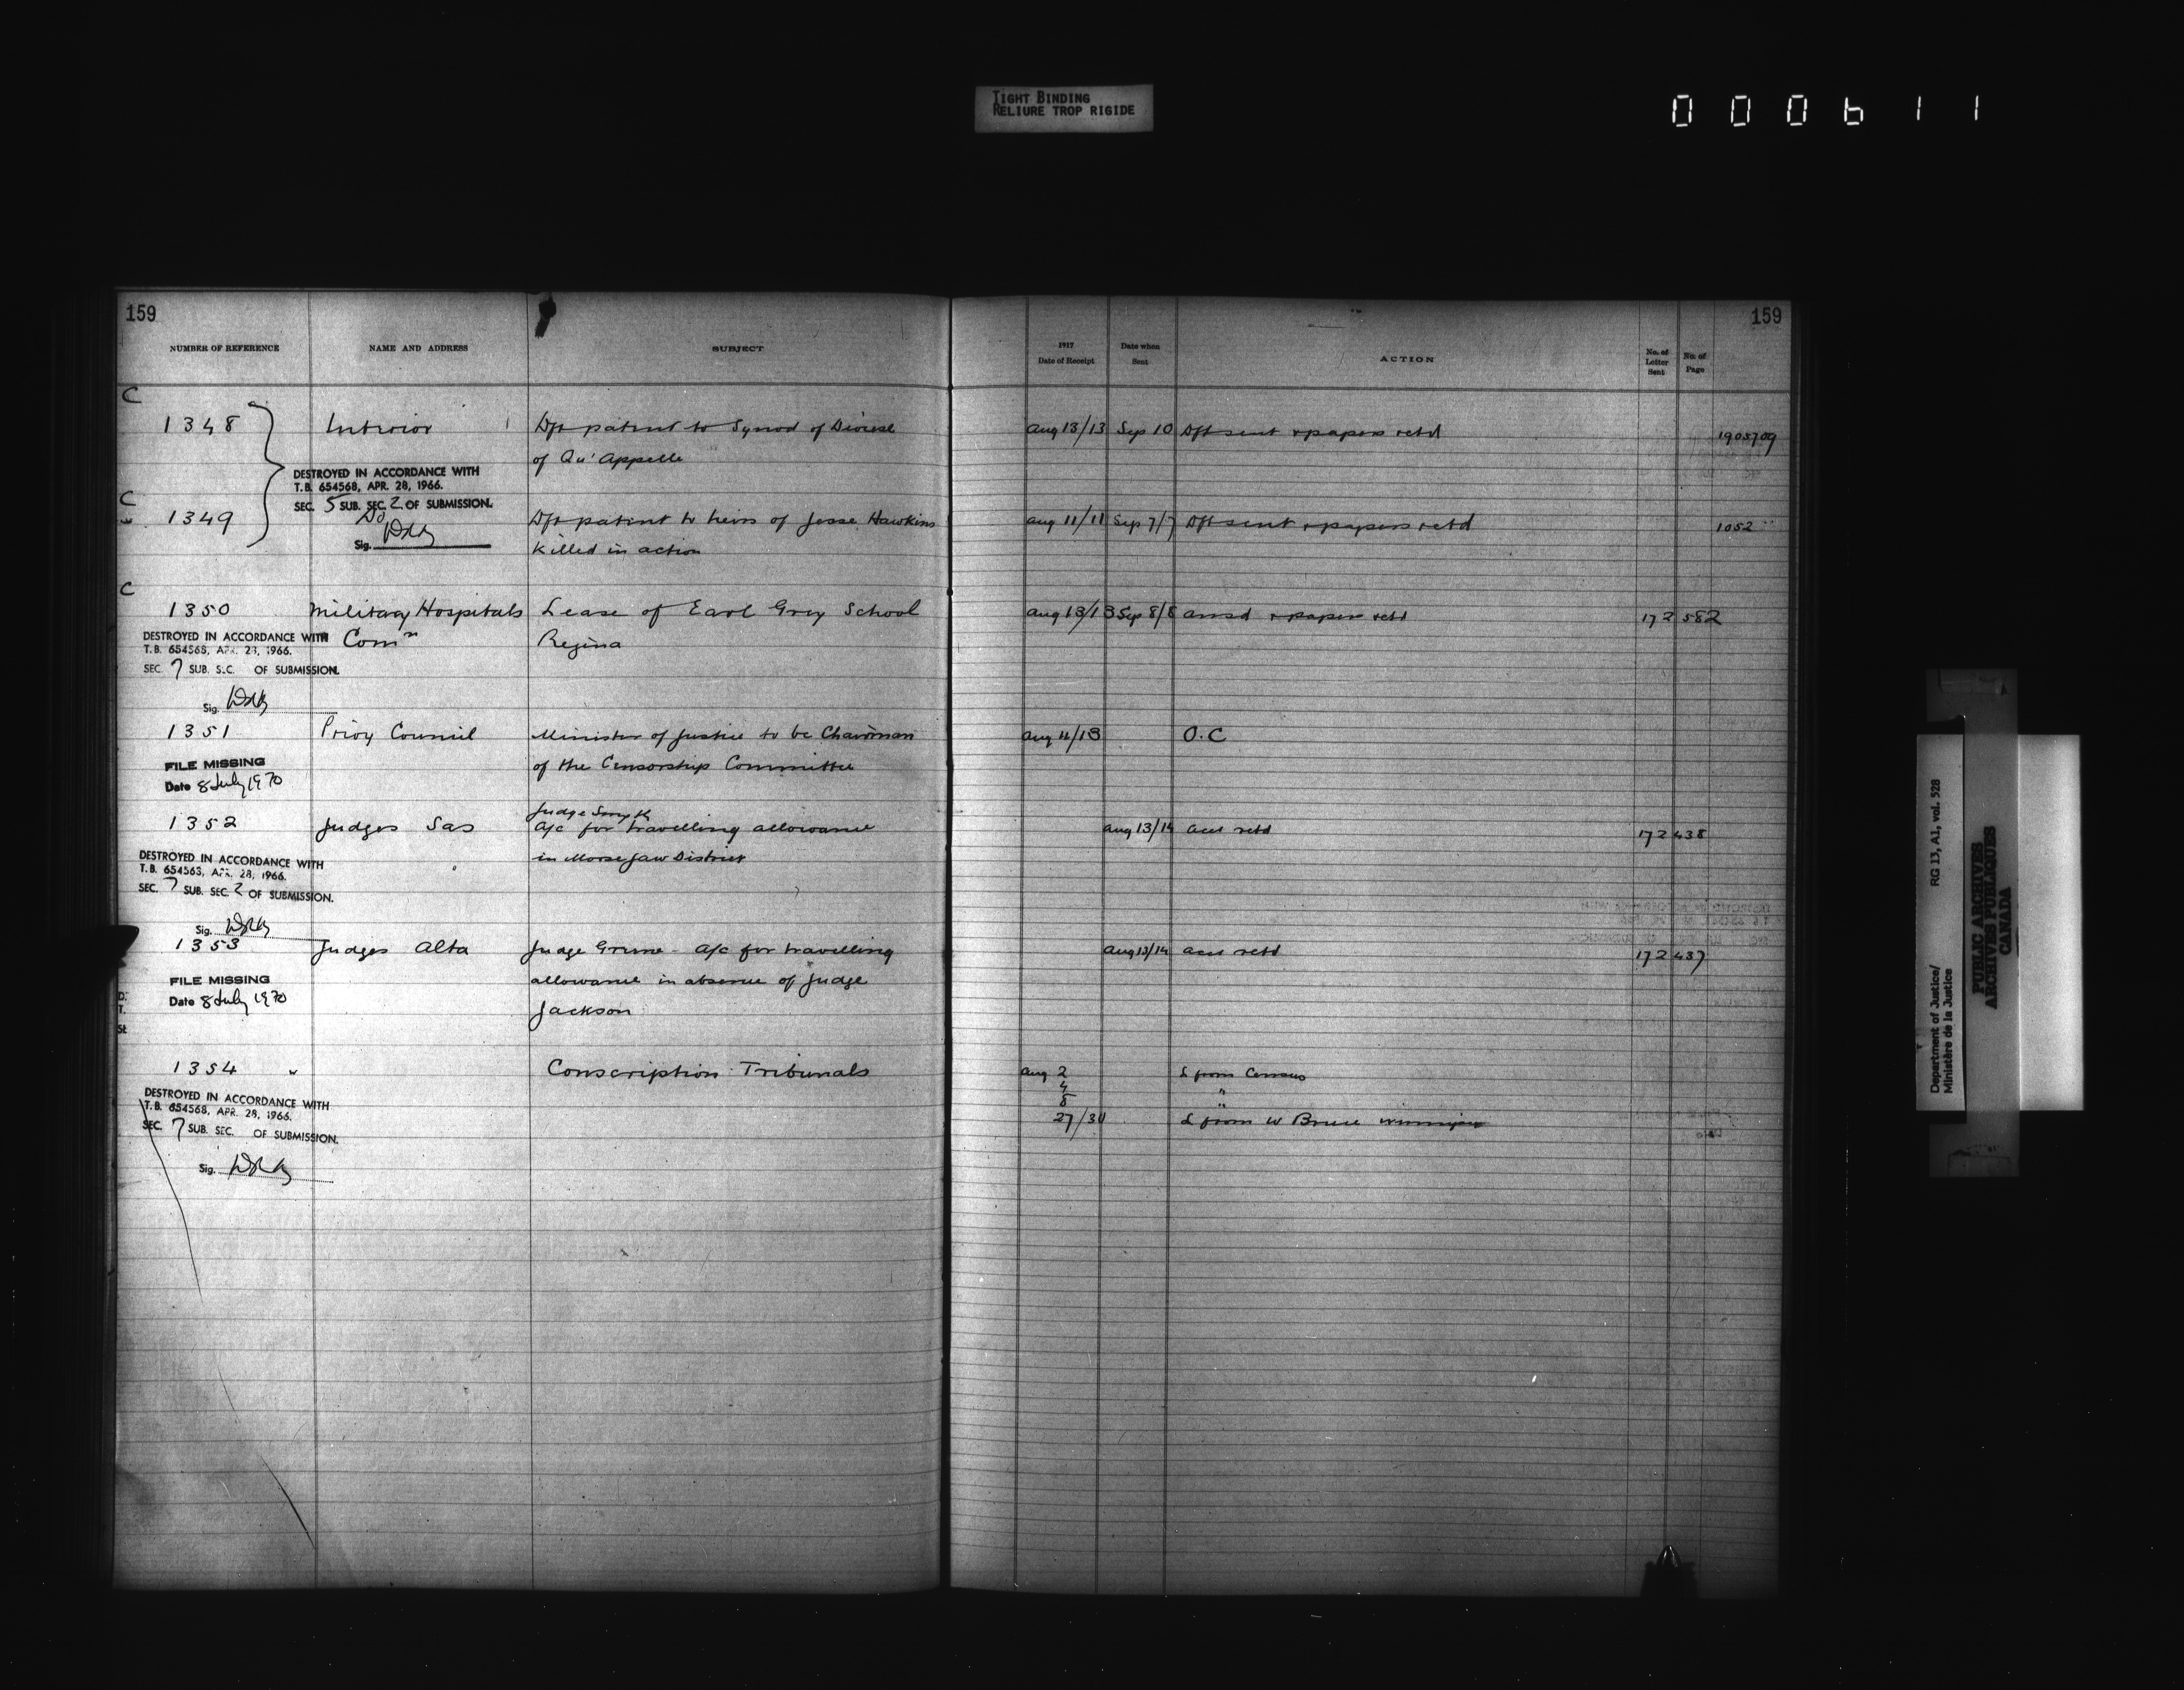 TIGHT BINDING
RELIURE TROP RIGIDE
000611
159
159
NUMBER OF REFERENCE NAME AND ADDRESS SUBJECT
1917 Date of Receipt Date when Sent ACTION No. of Letter Sent No. of Page
C
1348 Interior Dft patent to Synod of Diocese Aug 13/13 Sep 10 Dft sent & papers retd 1905709
of Qu'Appelle
DESTROYED IN ACCORDANCE WITH
T.B. 654568, APR. 28, 1966.
SEC. 5 SUB. SEC. 2 OF SUBMISSION.
C
1349 Do Dft patent to heirs of Jesse Hawkins Aug 11/11 Sep 7/7 Dft sent & papers retd 1052
Sig.
killed in action
C
1350 Military Hospitals Lease of Earl Grey School Aug 13/13 Sep 8/8 ansd & papers retd 172 582
Comn Regina
DESTROYED IN ACCORDANCE WITH
T.B. 654568, APR. 28, 1966.
SEC. 7 SUB. SEC. OF SUBMISSION.
Sig.
1351 Privy Council Minister of Justice to be Chairman Aug 11/13 O.C
of the Censorship Committee
FILE MISSING
Date 8 July 1970
Judge Smyth
1352 Judges Sas a/c for travelling allowance Aug 13/14 acct retd 172 438
in Moose Jaw District
DESTROYED IN ACCORDANCE WITH
T.B. 654563, APR. 28, 1966.
SEC. 7 SUB. SEC. 2 OF SUBMISSION.
Sig.
1353 Judges Alta Judge - a/c for travelling Aug 13/14 acct retd 172 437
allowance in absence of Judge
Jackson
FILE MISSING
Date 8 July 1970
D.
T.
SE
1354 " Conscription Tribunals Aug 2 L from Census
4 "
8 "
27/30 L from W Bruce Winnipeg
DESTROYED IN ACCORDANCE WITH
T.B. 654568, APR. 28, 1966.
SEC. 7 SUB. SEC. OF SUBMISSION.
Sig.
Department of Justice/ RG 13, A1, vol. 528
Ministère de la Justice
PUBLIC ARCHIVES
ARCHIVES PUBLIQUES
CANADA